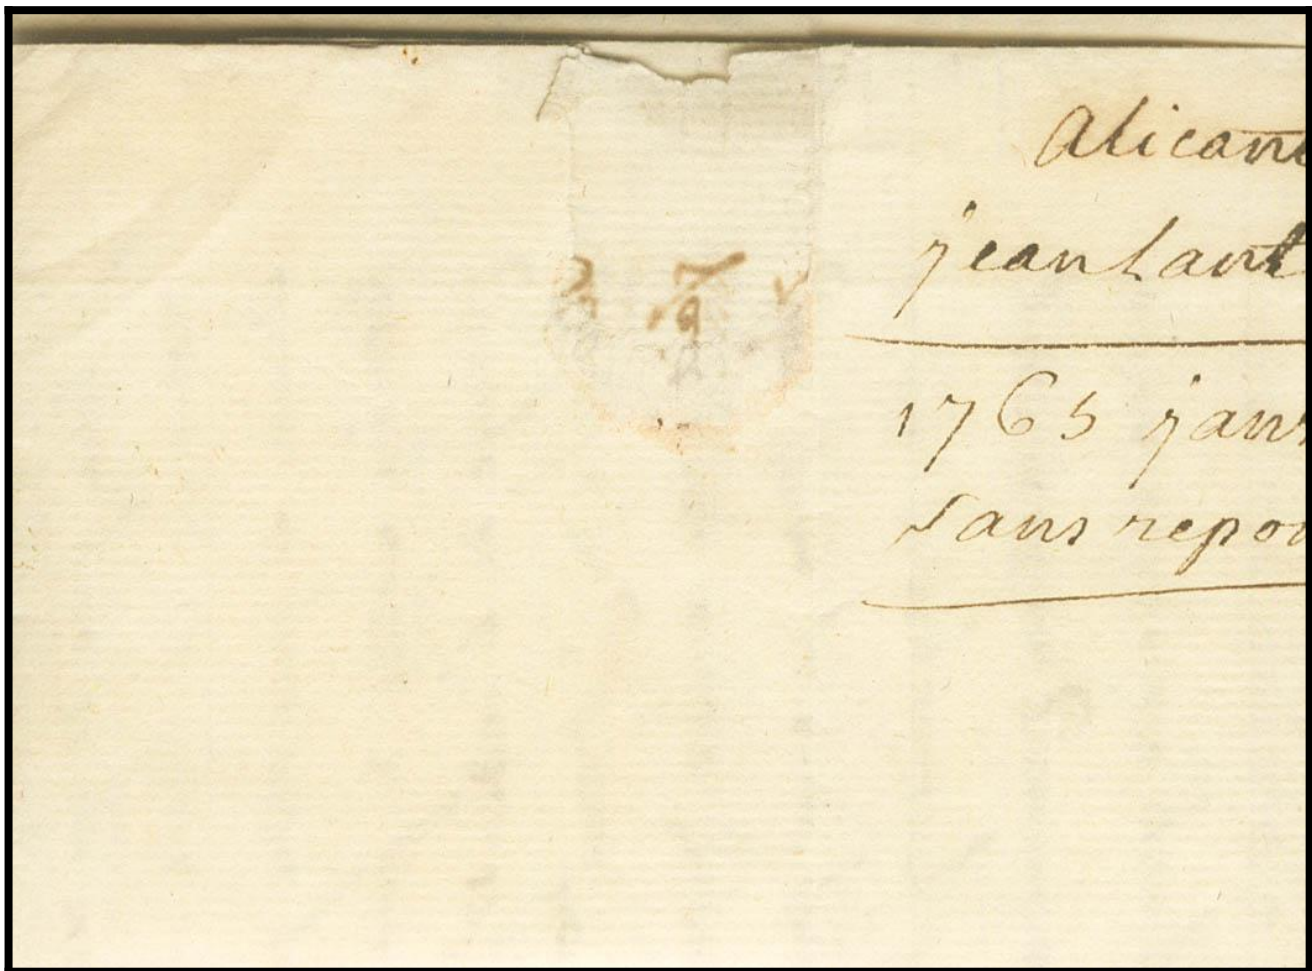 Alicant
jean Lavt
1765 janv
sans repon